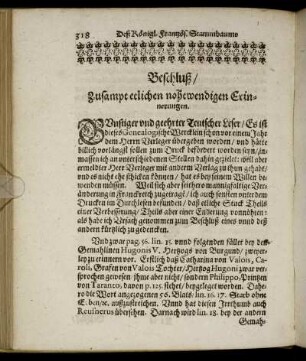 318 Deß Königl. Frantzös. Stammbaums
Beschluß /
Zusampt etlichen nohtwendigen Erin-
nerungen.
GUnstiger vnd geehrter Teutscher Leser / Es ist
dieses Genealogische Wercklein schon vor einem Jahr
dem Herrn Verleger übergeben worden / vnd hätte
billich vorlängst sollen zum Druck befördert worden seyn / in-
massen ich an vnterschiedenen Stellen dahin gezielet: weil aber
ermeldter Herr Verleger mit andern Verlag zu thun gehabt /
vnd es nicht ehe schicken können / hat es bey seinem Willen be-
wenden müssen. Weil sich aber seithero in Franckreich
änderung zugetragen / ich auch sonsten vnter dem
Drucken im Durchlesen befunden / daß etliche Stuck Theils
einer Verbesserung / Theils aber einer Enderung vonnöhten:
als habe ich Ursach genommen zum Beschluß eines vnnd deß
andern kürtzlich zu gedencken.
Vnd zwar pag. 56. lin. 15. vnnd folgenden fället bey
Gemahlinnen Hugonis V. Hertzogs von Burgund /
zu erinnern vor. Erstlich daß Catharina von Valois, Ca-
roli, Grafen von Valois Tochter / Hertzog Hugoni zwar ver-
sprochen gewesen / ihme aber nicht / sondern Philippo, Printzen
von Taranto, davon p. 125. stehet / beygeleget worden. Dahe-
ro die Wort angezogenen 56. Blats / lin. 16. 17. Starb ohne
&c. auszustreichen. Vnnd hat diesen Irrthumb auch
Reusnerus übersehen. Darnach wird lin. 18. bey der andern
Gemah-